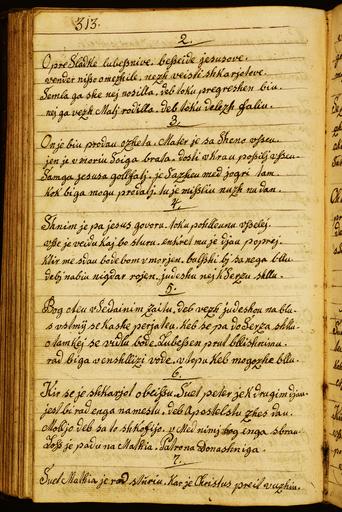 313.
2.
O pre Sladke lubesnive, beseide jesusove,
vender niso omezhile, nezh veisti shkarjotove.
Semla ga ske nej nosilla, deb toku pregreshen biu.
nej ga vezh Mati rodilla, deb toku delezh faliu.
3.
On je biu prodau ozheta, Mater je sa Sheno
jen je vmoriu Soiga brata, dosti
Samga jesusa je Sazheu med jogri tam
kok biga mogu prodati, tu je misliu nuzh nu dan.
4.
Shnim je pa jesus govoru, toku pohleunu
use je veidu kaj bo sturu, je djau poprej.
bode bom vmorjen, bulshi bi sa nega blu
debi nabiu nigdar rojen, judeshu nej k Serzu shlu.
5.
Bog ozeu vSedainim zaitu, deb vezh judeshou na blu
s vstmij se kashe perjateu, keb se pa do Serza shlu
tam kej se vidlu bode, Lubesen prut blishnimu
rad biga venshlizi vode, vtopu keb mogozhe blu.
6.
Kir se je shkarjot obeisu, Suet peter je k drugim djau
jest bi rad enga namestu, deb Apostelstu zhes dau.
Molijo deb sa to shkofijo, vMed nimi bog enga sbrau
Loss je padu na Mathia, Patrona
7.
Suet Mathia je rad sturiu, Kar je Christus preil